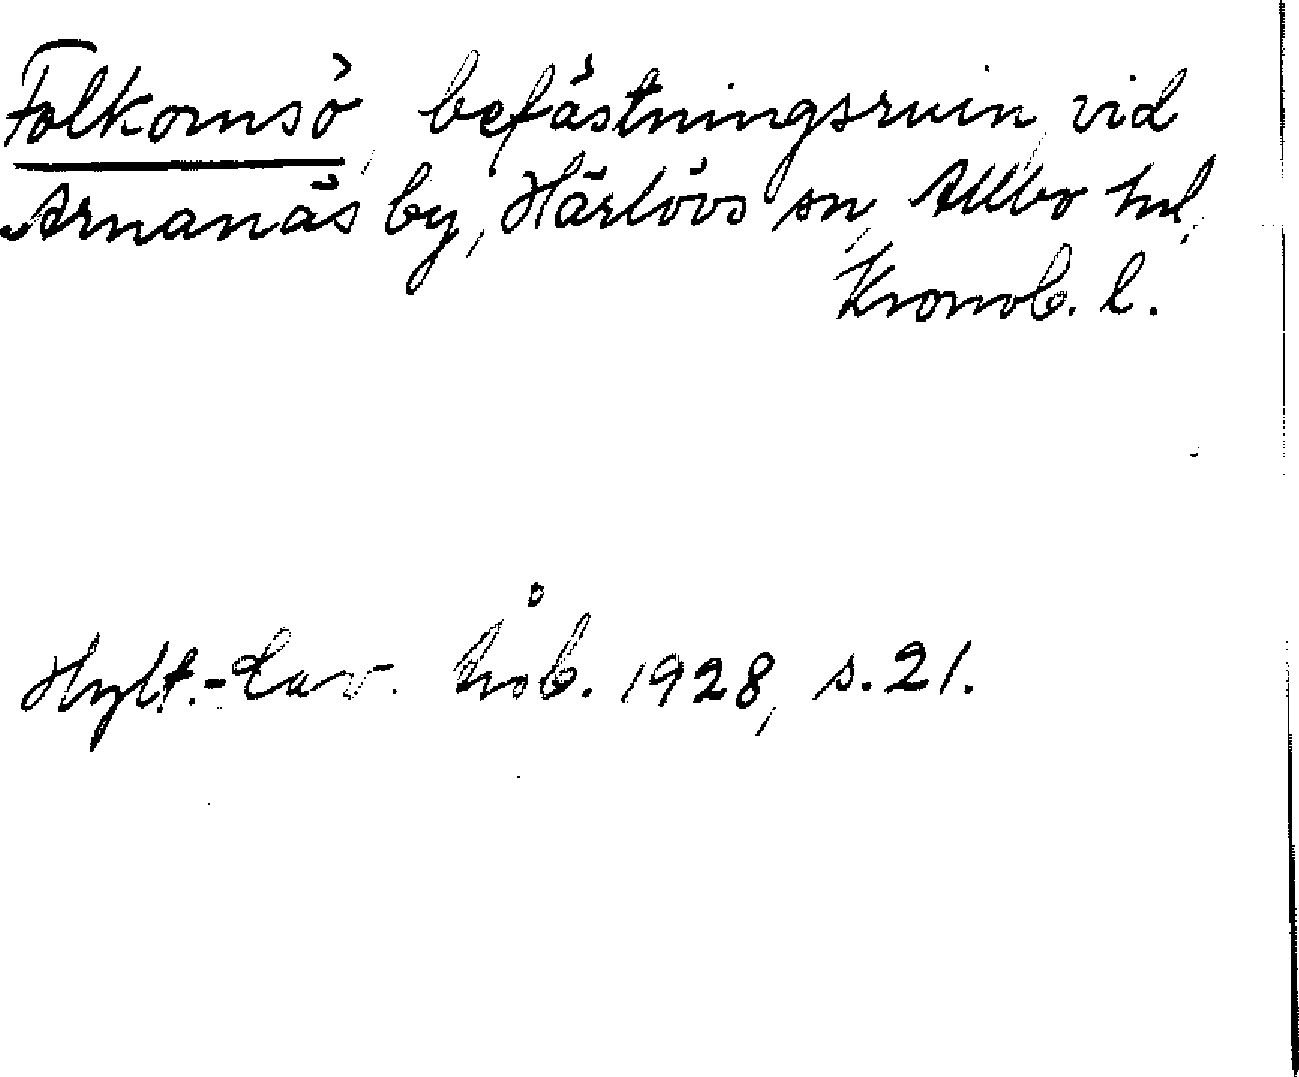 Folkomsö, befästningsruin vid
Arnanäs by, Härlövs sn, Allbo hd,
Kronob. l.
Hylt.-Cav. håb. 1928, s. 21.